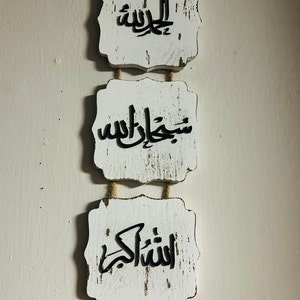 الحمد لله
سبحان الله
الله أكبر